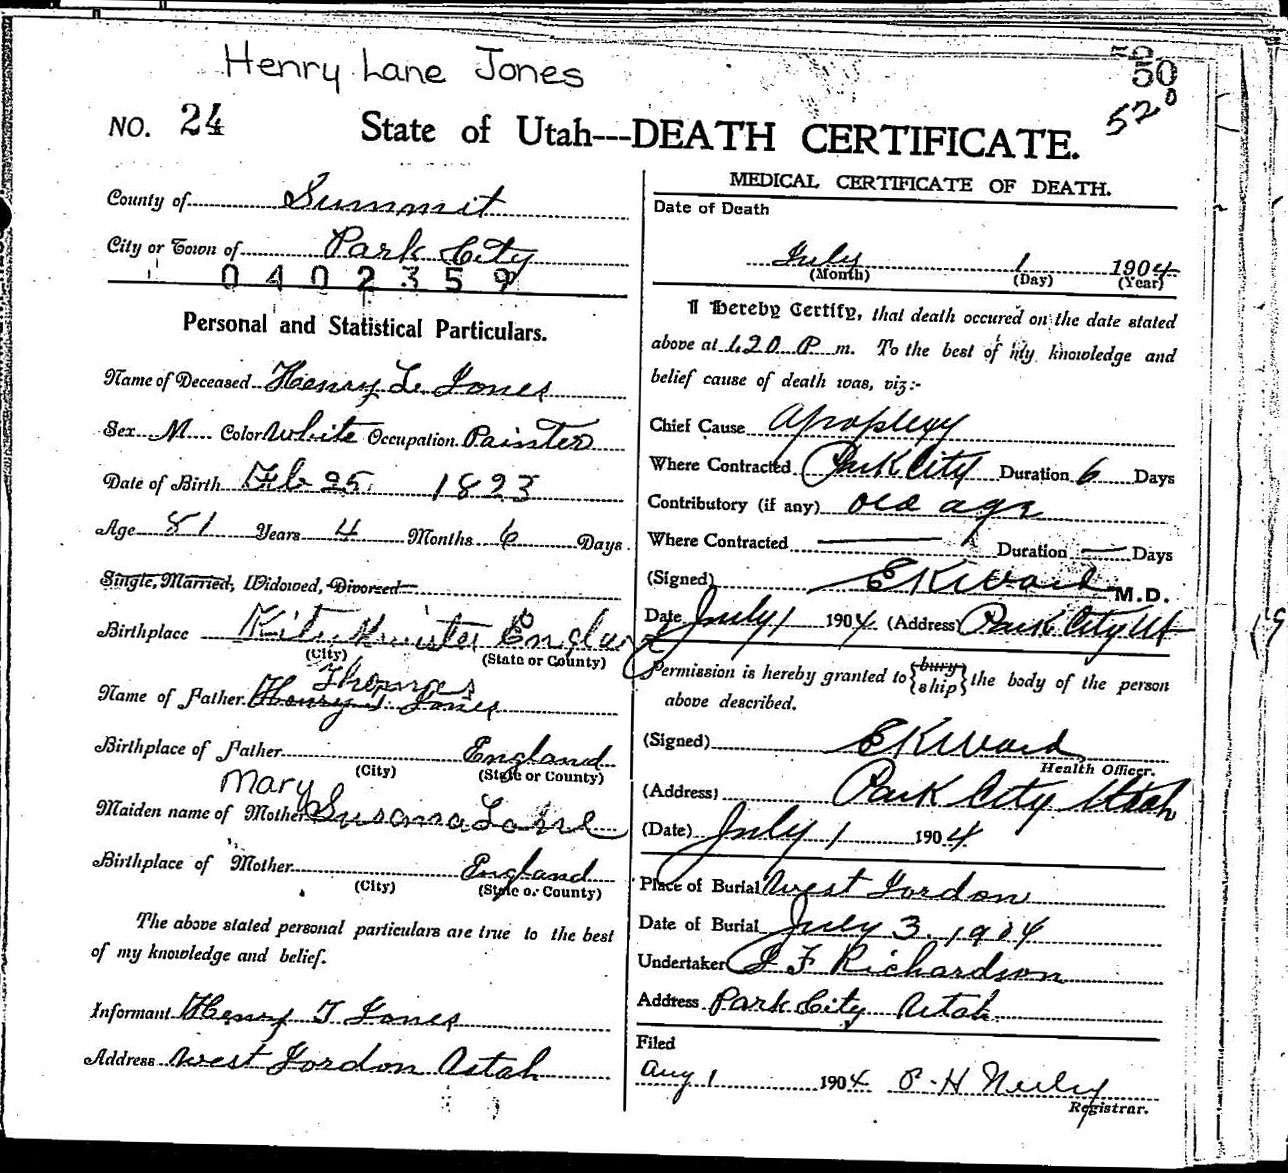 Henry Lane Jones
50
520
NO. 24
State of Utah---DEATH CERTIFICATE.
County of Summit
City or Town of Park City
0402359
Personal and Statistical Particulars.
Name of Deceased Henry L. Jones
Sex M Color White Occupation Painter
Date of Birth Feb 25 1823
Age 81 Years 4 Months 6 Days
Single, Married, Widowed, Divorced
Birthplace England
(City) (State or County)
Thomas
Name of Father Henry T. Jones
Birthplace of Father England
(City) (State or County)
Mary
Maiden name of Mother Susana Lane
Birthplace of Mother England
(City) (State or County)
The above stated personal particulars are true to the best
of my knowledge and belief.
Informant Henry T Jones
Address West Jordon Utah
MEDICAL CERTIFICATE OF DEATH.
Date of Death
July 1 1904
(Month) (Day) (Year)
I Hereby Certify, that death occured on the date stated
above at 1.20 P m. To the best of my knowledge and
belief cause of death was, viz:-
Chief Cause Apoplexy
Where Contracted Park City Duration 6 Days
Contributory (if any) old age
Where Contracted — Duration — Days
(Signed) E K Ward M.D.
Date July 1 1904 (Address) Park City Ut
Permission is hereby granted to {bury ship} the body of the person
above described.
(Signed) E K Ward
Health Officer.
(Address) Park City Utah
(Date) July 1 1904
Place of Burial West Jordon
Date of Burial July 3. 1904
Undertaker F Richardson
Address Park City Utah.
Filed
Aug 1 1904
Registrar.